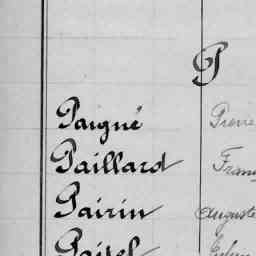 P
Paigné Pierre
Paillard Franç
Pairin Auguste
Paitel